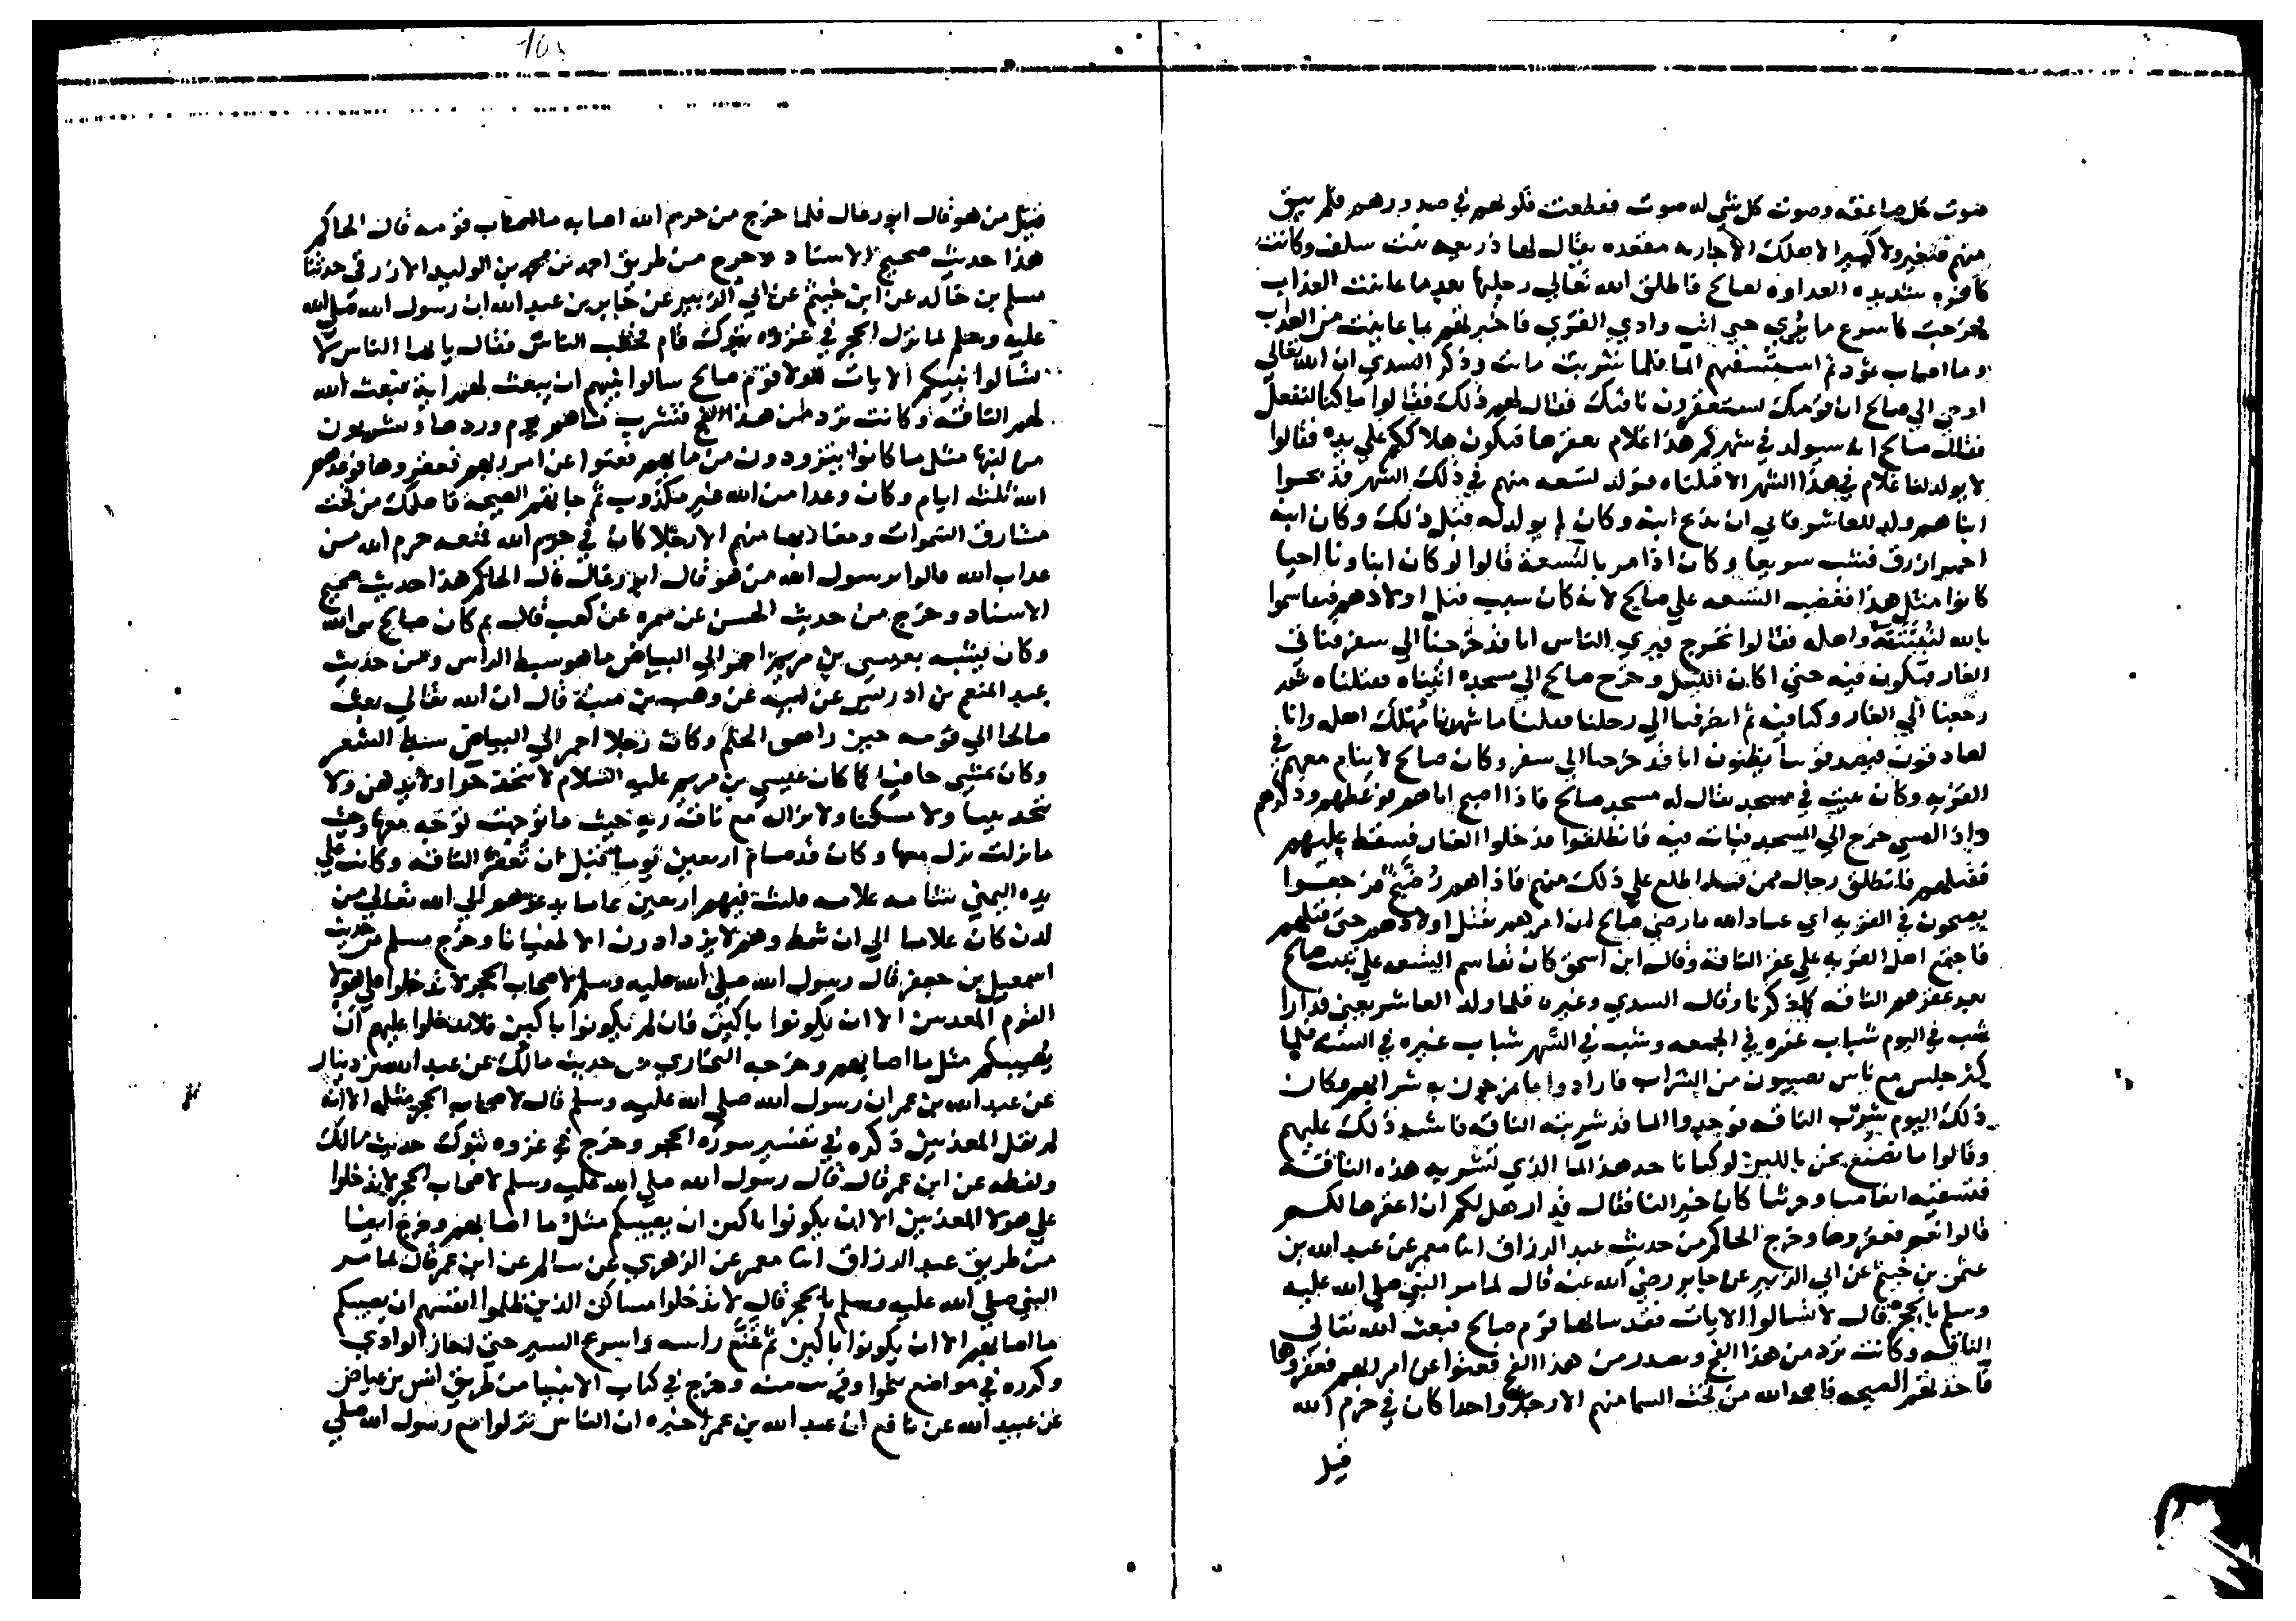 صوت كل صاعقه وصوت كل شي له صوت فقطعت قلوبهم في صدورهم فلم يبق
منهم صغير ولا كبير الا هلك الا جاريه مقعده يقال لها ذريعه بنت سلف وكانت
كافره شديده العداوه لصالح فاطلق الله تعالي رجليها بعد ما عاينت العذاب
فخرجت كاسرع ما يري حتي اتت وادي القري فاخبرتهم بما عاينت من العذاب
وما اصاب ثمود ثم استسقتهم الما فلما شربت ماتت وذكر السدي ان الله تعالي
اوحي الي صالح ان قومك سيعقرون ناقتك فقال لهم ذلك فقالوا ما كنا لنفعل
فقال صالح انه سيولد في شهركم هذا غلام يعقرها فيكون هلاككم علي يده فقالوا
لا يولد لنا غلام في هذا الشهر الا قتلناه فولد لتسعه منهم في ذلك الشهر فذبحوا
ابناهم وولد للعاشر فابي ان يذبح ابنه وكان لم يولد له قبل ذلك وكان ابنه
احمر ازرق فنبت سريعا وكان اذا مر بالتسعة قالوا لو كان ابناونا احيا
كانوا مثل هذا فغضب التسعه علي صالح لانه كان سبب قتل اولادهم فتقاسموا
بالله لنبيتنه واهله فقالوا نخرج فيري الناس انا قد خرجنا الي سفر فناتي
الغار فنكون فيه حتي اذا كان الليل وخرج صالح الي مسجده اتيناه فقتلناه ثم
رجعنا الي الغار وكنا فيه ثم انصرفنا الي رحلنا فقلنا ما شهدنا مهلك اهله وانا
لصادقون فيصدقوننا يظنون انا قد خرجنا الي سفر وكان صالح لا ينام معهم في
القريه وكان يبيت في مسجد يقال له مسجد صالح فاذا اصبح اتاهم فوعظهم وذكرهم
واذا امسي خرج الي المسجد فبات فيه فانطلقوا فدخلوا الغار فسقط عليهم
فقتلهم فانطلق رجال ممن قد اطلع علي ذلك منهم فاذا هم رضخ فرجعوا
يصيحون في القريه اي عباد الله ما رضي صالح ان امرهم بقتل اولادهم حتي قتلهم
فاجتمع اهل القريه علي عقر الناقه وقال ابن اسحق كان تقاسم التسعه علي تبييت صالح
بعد عقرهم الناقه كما ذكرنا وقال السدي وغيره فلما ولد العاشر يعني قدارا
شب في اليوم شباب غيره في الجمعه وشب في الشهر شباب غيره في السنه فلما
كبر جلس مع ناس يصيبون من الشراب فارادوا ما يمزجون به شرابهم وكان
ذلك اليوم شرب الناقه فوجدوا الما قد شربته الناقه فاشتد ذلك عليهم
وقالوا ما نصنع نحن باللبن لو كنا ناخذ هذا الما الذي تشربه هذه الناقه
فنسقيه انعامنا وحرثنا كان خير النا فقال قدار هل لكم ان اعقرها لكم
قالوا نعم فعقروها وخرج الحاكم من حديث عبد الرزاق انا معمر عن عبد الله بن
عثمن بن خيثم عن ابي الزبير عن جابر رضي الله عنه قال لما مر النبي صلي الله عليه
وسلم بالحجر قال لا تسالوا الايات فقد سالها قوم صالح فبعث الله تعالي
الناقه وكانت ترد من هذا الفج وتصدر من هذا الفج فعتوا عن امر ربهم فعقروها
فاخذتهم الصيحه فاخمد الله من تحت السما منهم الا رجلا واحدا كان في حرم الله
قيل
قيل من هو قال ابو رغال فلما خرج من حرم الله اصابه ما اصاب قومه قال الحاكم
هذا حديث صحيح الاسناد وخرج من طريق احمد بن محمد بن الوليد الازرقي حدثنا
مسلم بن خالد عن ابن خيثم عن ابي الزبير عن جابر بن عبد الله ان رسول الله صلي الله
عليه وسلم لما نزل الحجر في غزوه تبوك قام فخطب الناس فقال يا ايها الناس لا
تسالوا نبيكم الايات هولا قوم صالح سالوا نبيهم ان يبعث لهم اية فبعث الله
لهم الناقه وكانت ترد من هذا الفج فتشرب ماهم يوم وردها ويشربون
من لبنها مثل ما كانوا يتزودون من مايهم فعتوا عن امر ربهم فعقروها فوعدهم
الله ثلثه ايام وكان وعدا من الله غير مكذوب ثم جاتهم الصيحه فاهلك من تحت
مشارق السموات ومغاربها منهم الا رجلا كان في حرم الله فمنعه حرم الله من
عذاب الله قالوا يرسول الله من هو قال ابو رغال قال الحاكم هذا حديث صحيح
الاسناد وخرج من حديث الحسن عن سمره عن كعب قال ثم كان صالح نبي الله
وكان يشبه بعيسي بن مريم احمر الي البياض ما هو سبط الراس ومن حديث
عبد المنعم بن ادريس عن ابيه عن وهب بن منبه قال ان الله تعالي بعث
صالحا الي قومه حين راهق الحلم وكان رجلا احمر الي البياض سبط الشعر
وكان يمشي حافيا كما كان عيسي بن مريم عليه السلام لا يتخذ حذا ولا يدهن ولا
يتخذ بيتا ولا مسكنا ولا يزال مع ناقه ربه حيث ما توجهت توجه معها وحيث
ما نزلت نزل معها وكان قد صام اربعين يوما قبل ان تعقر الناقه وكانت علي
يده اليمني شامه علامه فلبث فيهم اربعين عاما يدعوهم الي الله تعالي من
لدن كان غلاما الي ان شمط وهم لا يزدادون الا طغيانا وخرج مسلم من حديث
اسمعيل بن جعفر قال رسول الله صلي الله عليه وسلم لاصحاب الحجر لا تدخلوا علي هولا
القوم المعذبين الا ان تكونوا باكين فان لم تكونوا باكين فلا تدخلوا عليهم ان
يصيبكم مثل ما اصابهم وخرجه البخاري من حديث مالك عن عبد الله بن دينار
عن عبد الله بن عمر ان رسول الله صلي الله عليه وسلم قال لاصحاب الحجر مثله الا انه
لم يقل المعذبين ذكره في تفسير سوره الحجر وخرج في غزوه تبوك حديث مالك
ولفظه عن ابن عمر قال قال رسول الله صلي الله عليه وسلم لاصحاب الحجر لا تدخلوا
علي هولا المعذبين الا ان تكونوا باكين ان يصيبكم مثل ما اصابهم وخرج ايضا
من طريق عبد الرزاق انا معمر عن الزهري عن سالم عن ابن عمر قال لما مر
النبي صلي الله عليه وسلم بالحجر قال لا تدخلوا مساكن الذين ظلموا انفسهم ان يصيبكم
ما اصابهم الا ان تكونوا باكين ثم قنع راسه واسرع السير حتي اجاز الوادي
وكرره في مواضع وخرج في كتاب الانبيا من طريق انس بن عياض
عن عبيد الله عن نافع ان عبد الله بن عمر اخبره ان الناس نزلوا مع رسول الله صلي